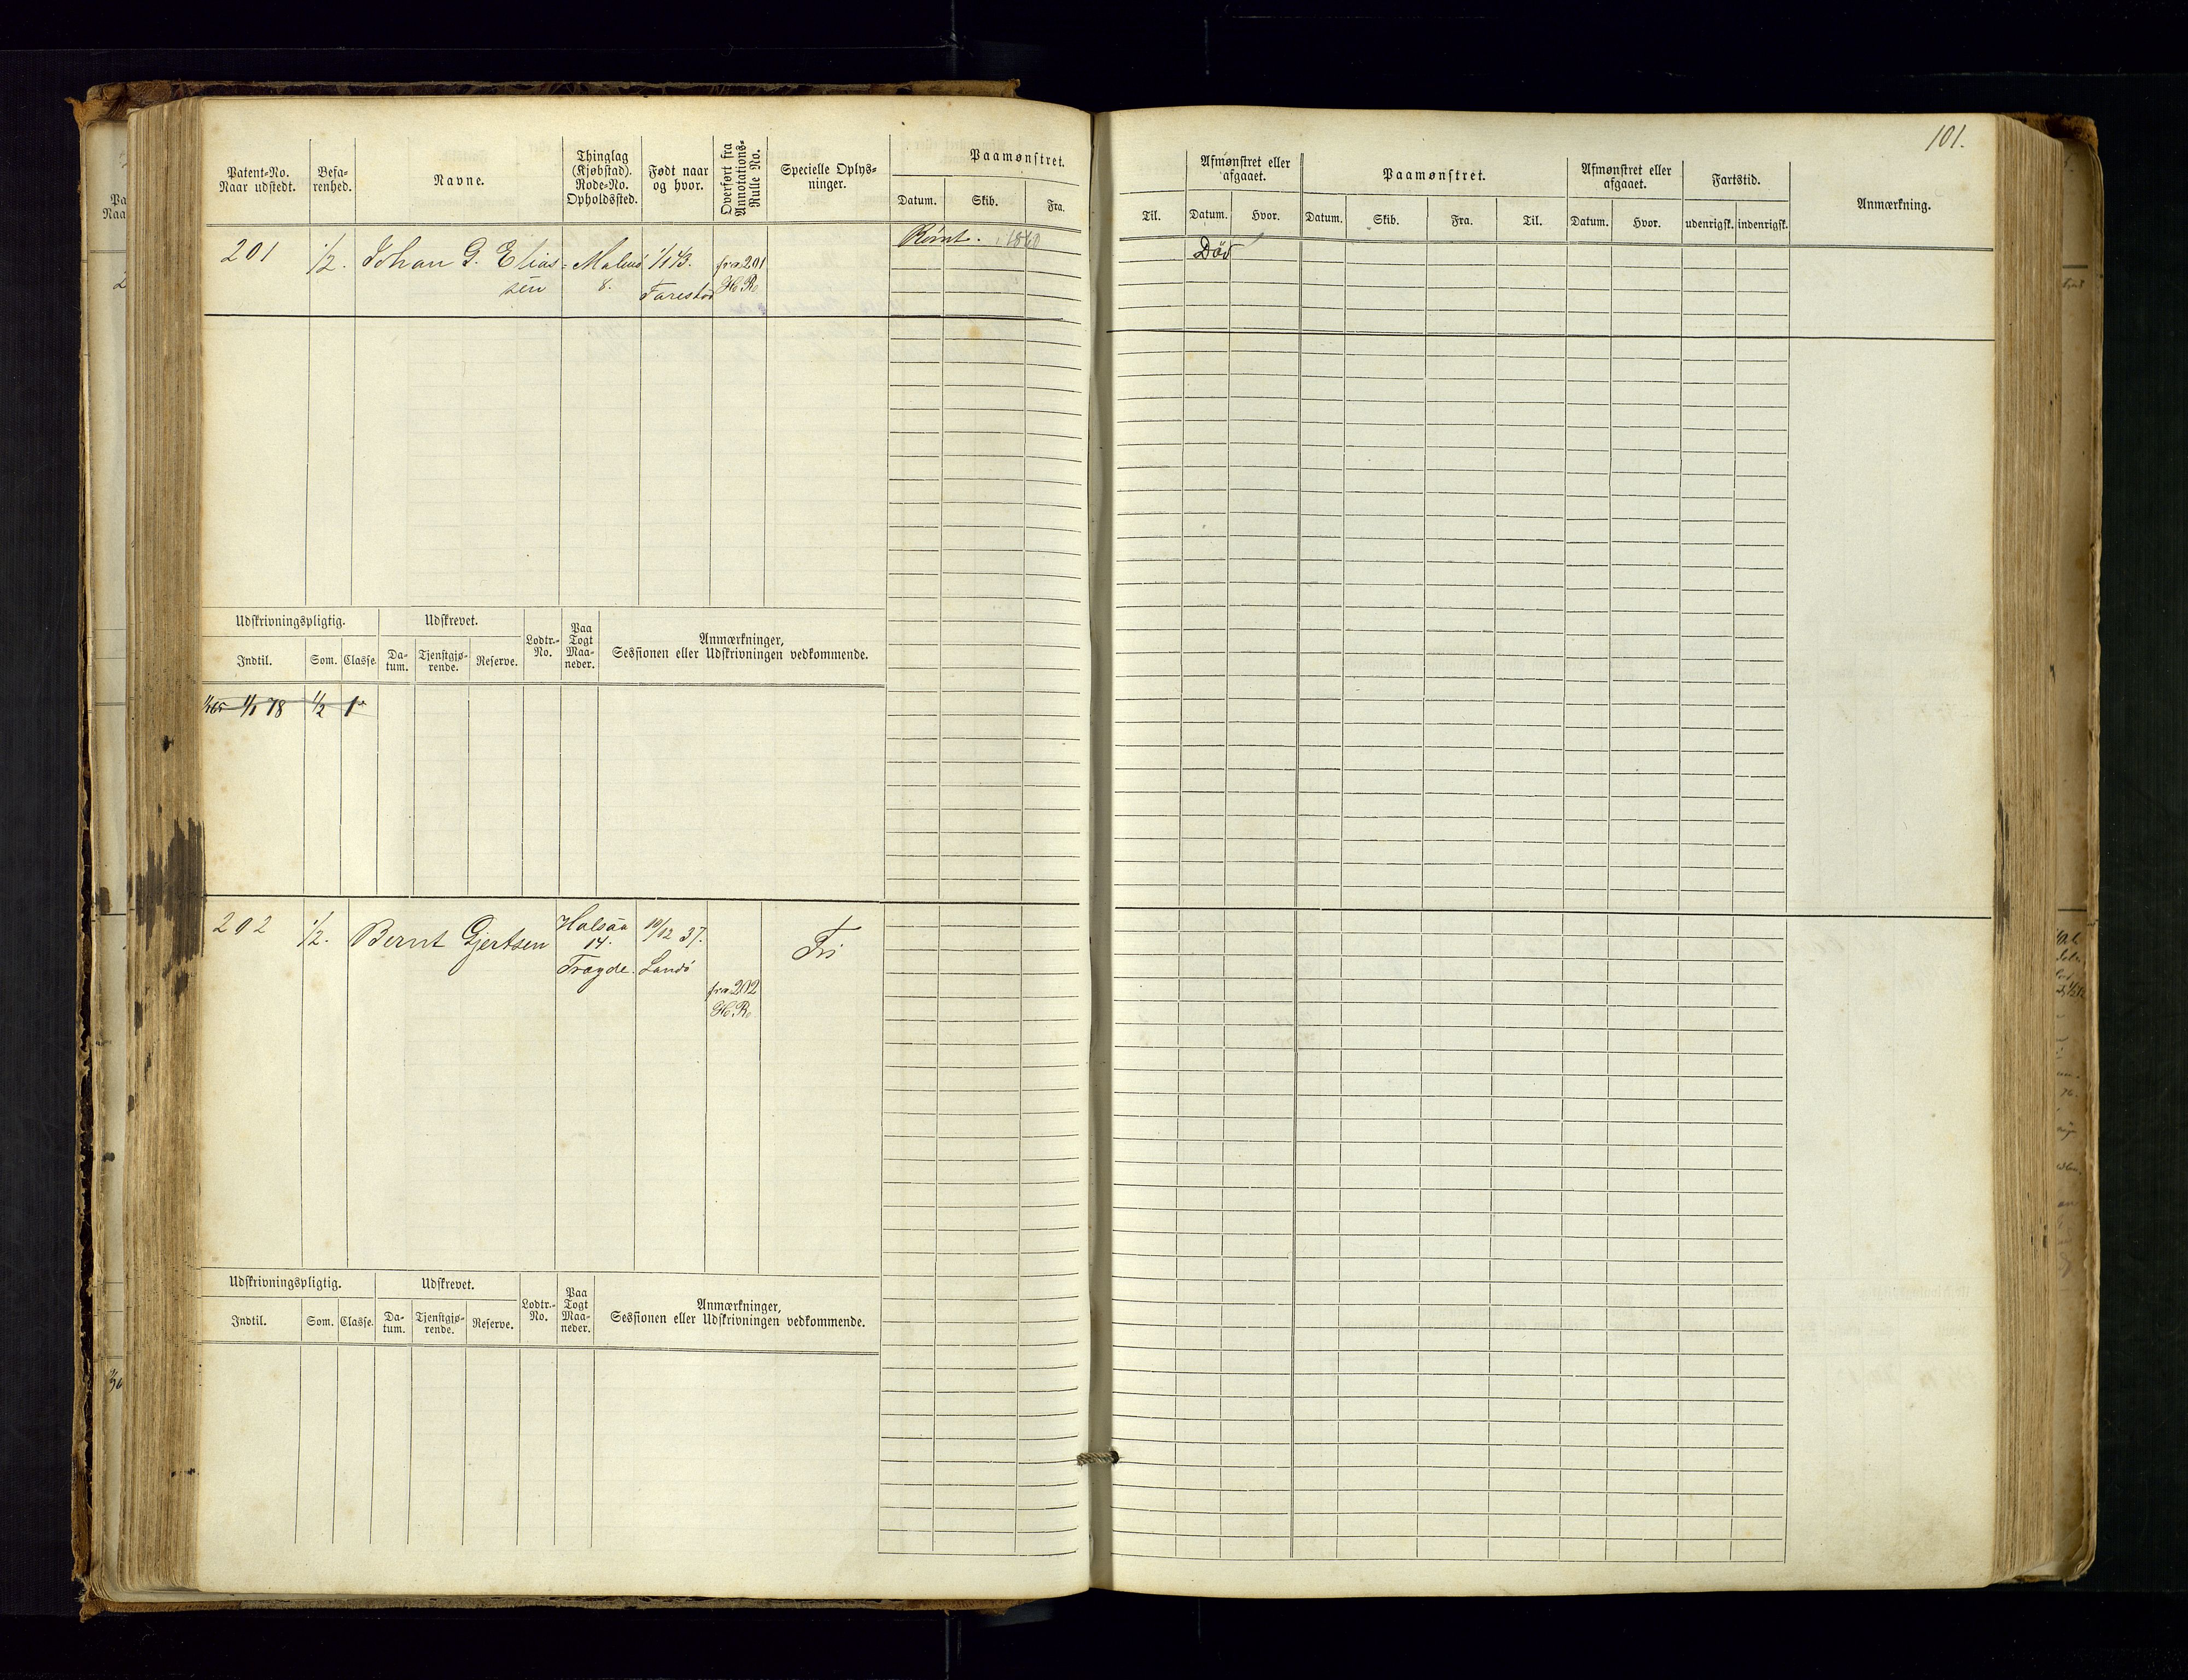 101.
Patent-No. Naar udstedt.
Befa-renhed.
Navne.
Thinglag (Kjøbstad). Rode-No. Opholdssted.
Født naar og hvor.
Overført fra Annotations-Rulle No.
Specielle Oplys-ninger.
Paamønstret.
Datum. Skib. Fra.
Til.
Afmønstret eller afgaaet.
Datum. Hvor.
Paamønstret.
Datum. Skib. Fra. Til.
Afmønstret eller afgaaet.
Datum. Hvor.
Fartstid.
udenrigsk. indenrigsk.
Anmærkning.
201 1/2. Johan G. Elias- Malmö 1/1 43. fra 201
sen 8. Farestad
Død
Udskrivningspligtig.
Indtil. Som. Classe.
Udskrevet.
Da-tum. Tjenstgjø-rende. Reserve.
Lodtr.-No.
Paa Togt Maa-neder.
Anmærkninger,
Sessionen eller Udskrivningen vedkommende.
1/1 78 1/2 1
202 1/2. Bernt Gjertsen Halsaa 10/12 37. Fri
14.
Trogde. Landö
fra 202
Udskrivningspligtig.
Indtil. Som. Classe.
Udskrevet.
Da-tum. Tjenstgjø-rende. Reserve.
Lodtr.-No.
Paa Togt Maa-neder.
Anmærkninger,
Sessionen eller Udskrivningen vedkommende.